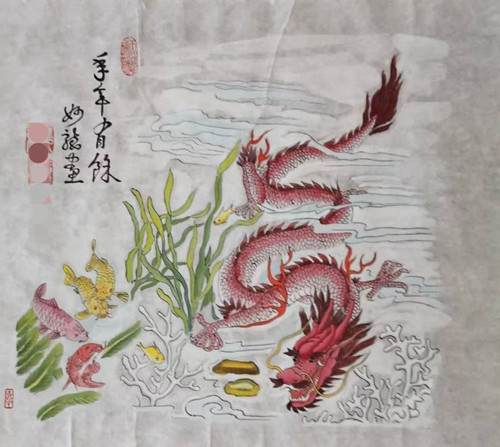 年年有餘
妙龍畫